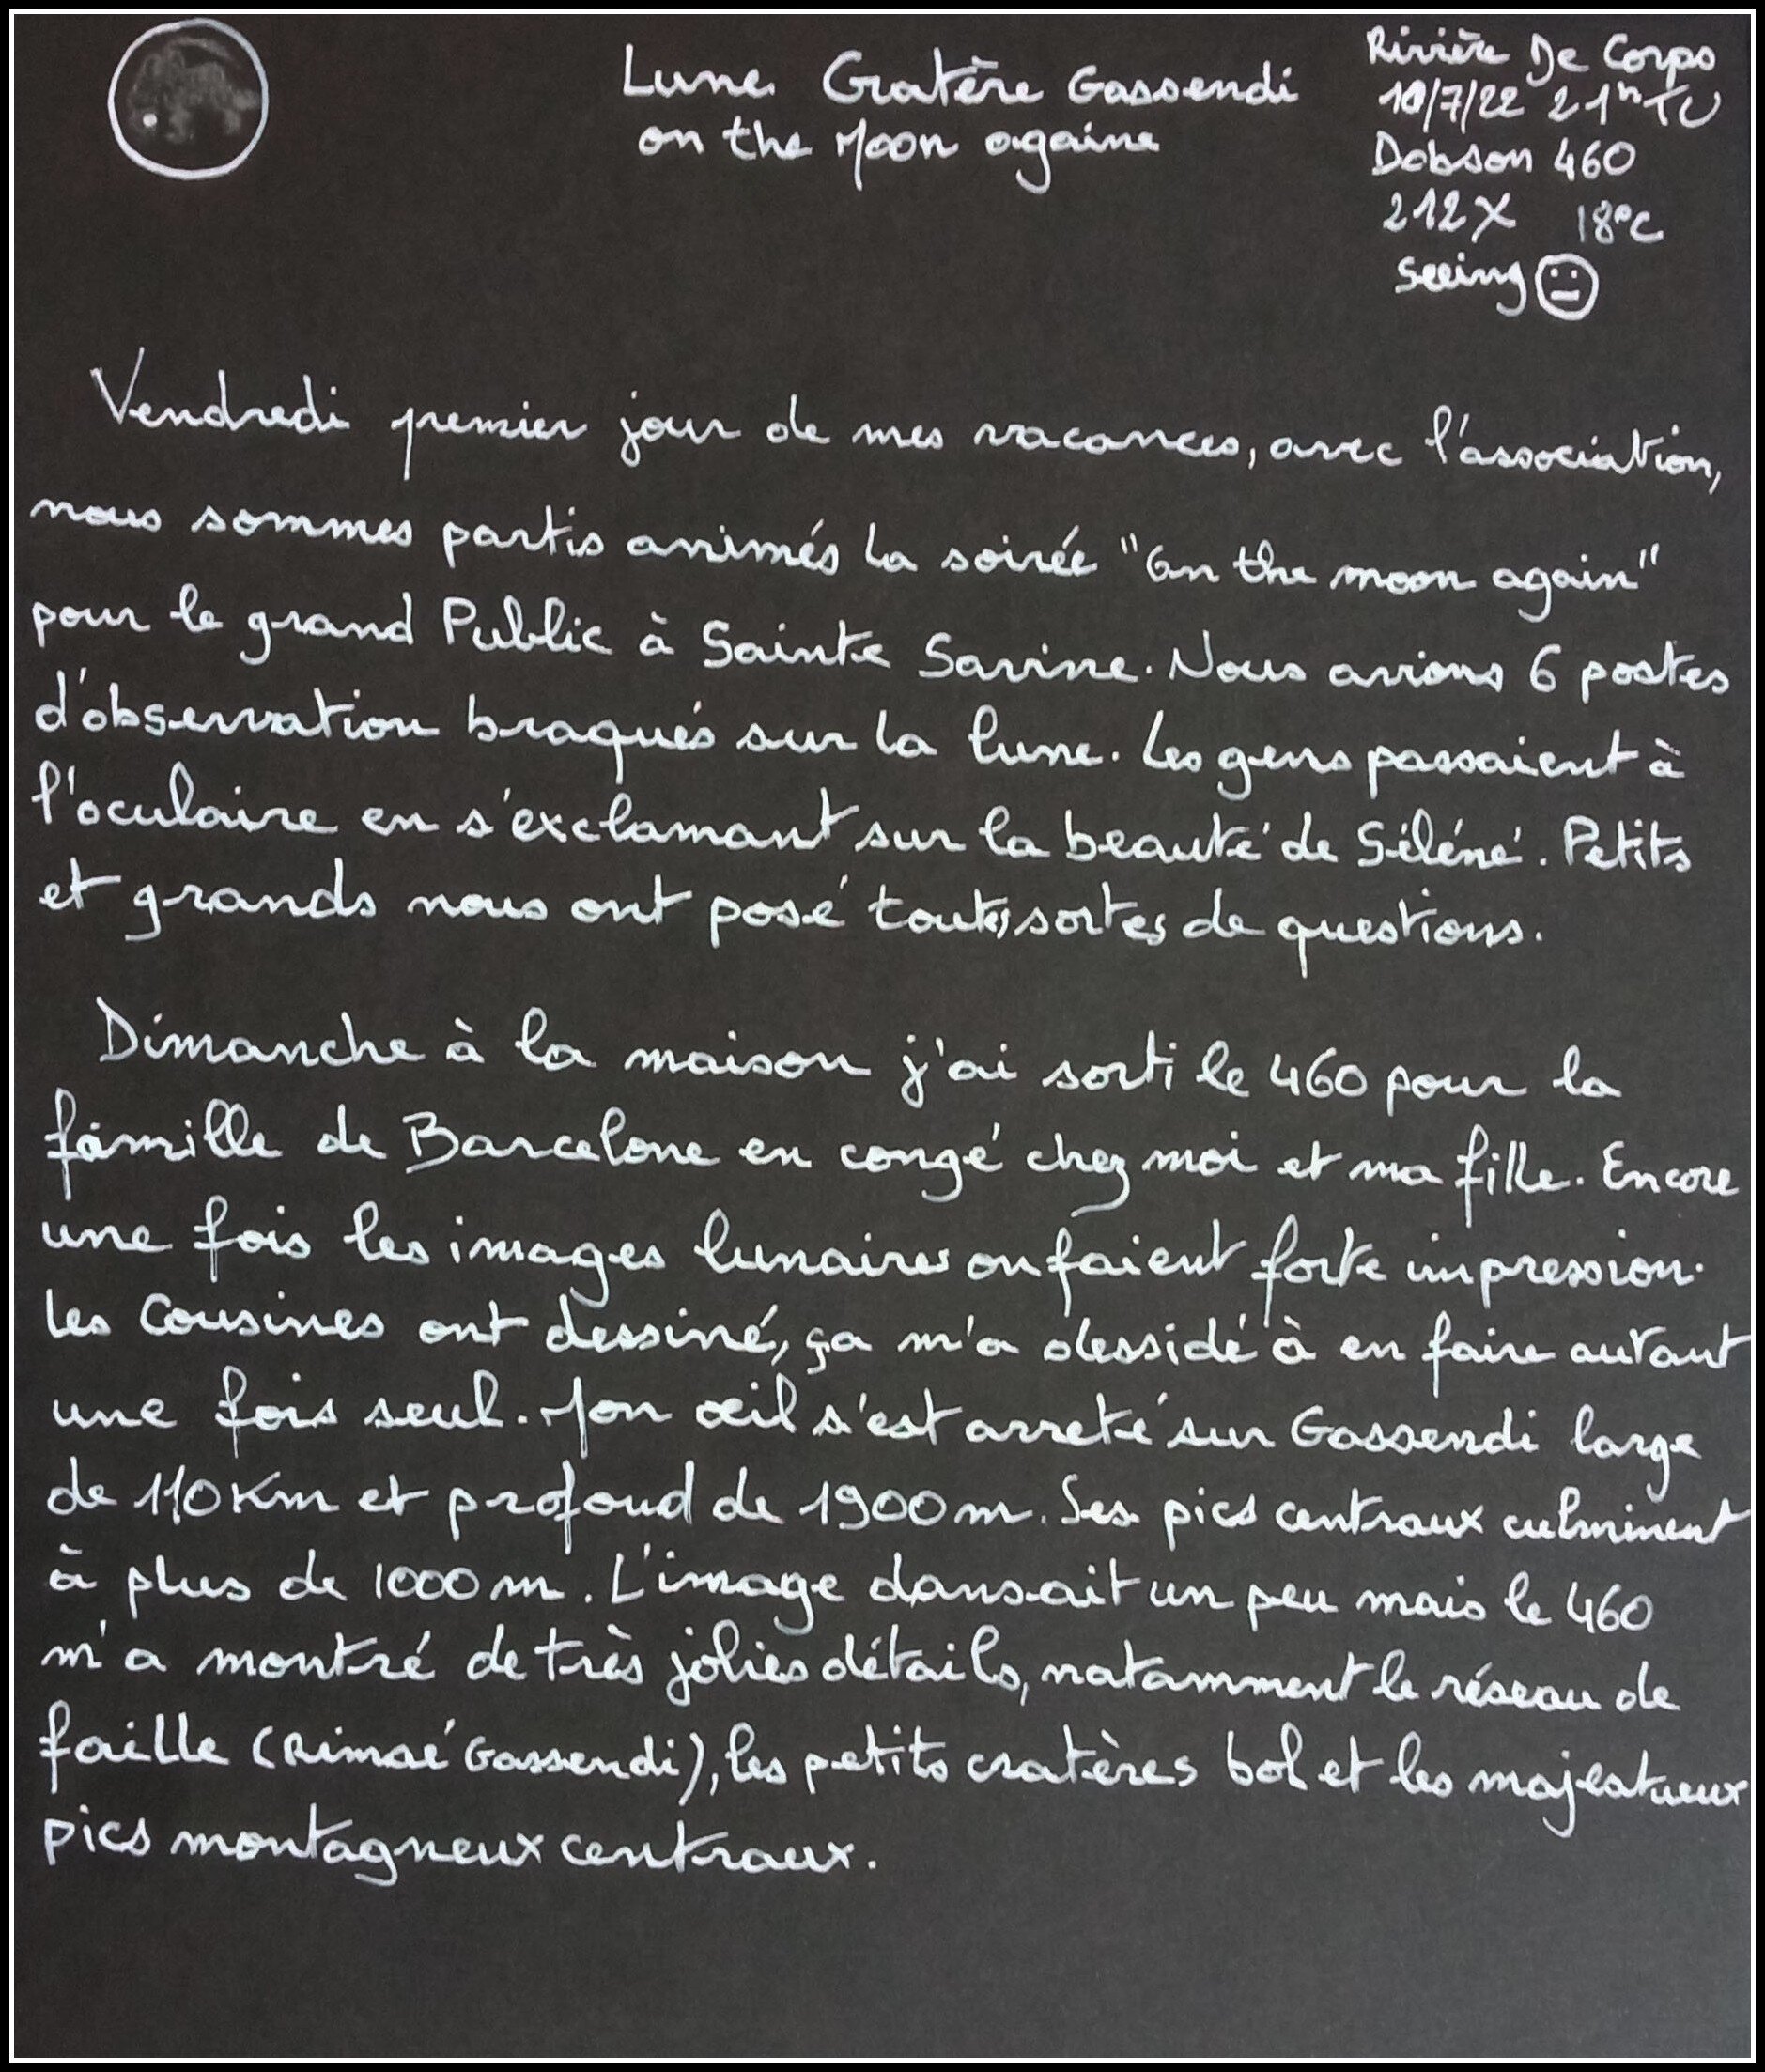 Lune Cratère Gassendi
on the Moon againe
Rivière De Corps
10/7/22 21h TU
Dobson 460
212X 18°C
seeing
Vendredi premier jour de mes vacances, avec l'association,
nous sommes partis animés la soirée "On the moon again"
pour le grand Public à Sainte Savine. Nous avions 6 postes
d'observation braqués sur la lune. Les gens passaient à
l'oculaire en s'exclamant sur la beauté de Séléné. Petits
et grands nous ont posé toutes sortes de questions.
Dimanche à la maison j'ai sorti le 460 pour la
famille de Barcelone en congé chez moi et ma fille. Encore
une fois les images lunaires on faient forte impression.
Les Cousines ont dessiné, ça m'a dessidé à en faire autant
une fois seul. Mon œil s'est arreté sur Gassendi large
de 110 Km et profond de 1900 m. Ses pics centraux culminent
à plus de 1000 m. L'image dansait un peu mais le 460
m'a montré de très jolies détails, natamment le réseau de
faille (Rimaé Gassendi), les petits cratères bol et les majestueux
pics montagneux centraux.